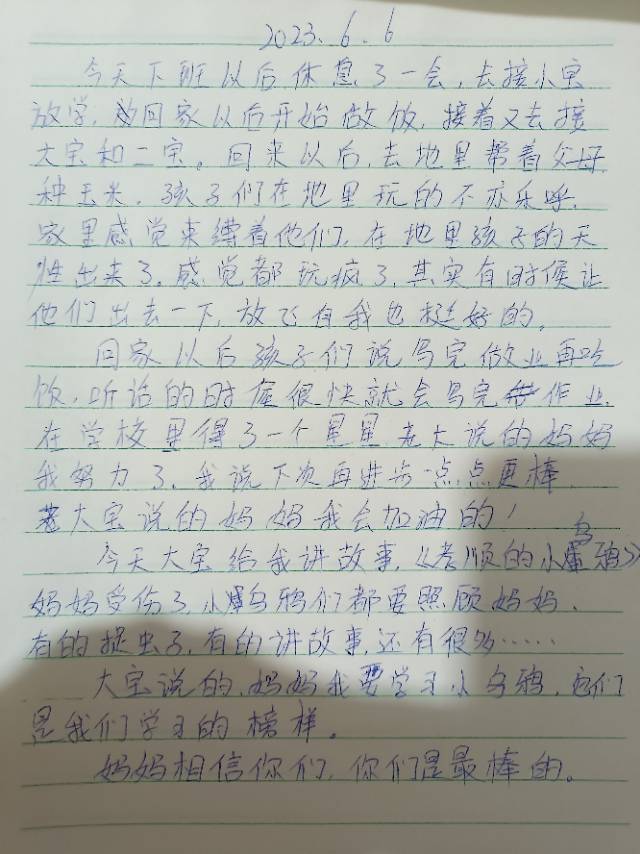 2023.6.6
今天下班以后休息了一会,去接小宝
放学,回家以后开始做饭,接着又去接
大宝和二宝。回来以后,去地里帮着父母
种玉米,孩子们在地里玩的不亦乐呼,
家里感觉束缚着他们,在地里孩子的天
性出来了,感觉都玩疯了,其实有时候让
他们出去一下,放飞自我也挺好的。
回家以后孩子们说写完做业再吃
饭,听话的时候很快就会写完作业,
在学校里得了一个星星,老大说的妈妈
我努力了,我说下次再进步一点点更棒,
大宝说的妈妈我会加油的!
今天大宝给我讲故事,《孝顺的小乌鸦》
妈妈受伤了,小乌鸦们都要照顾妈妈,
有的捉虫子,有的讲故事,还有很多……
大宝说的,妈妈我要学习小乌鸦,它们
是我们学习的榜样。
妈妈相信你们,你们是最棒的。